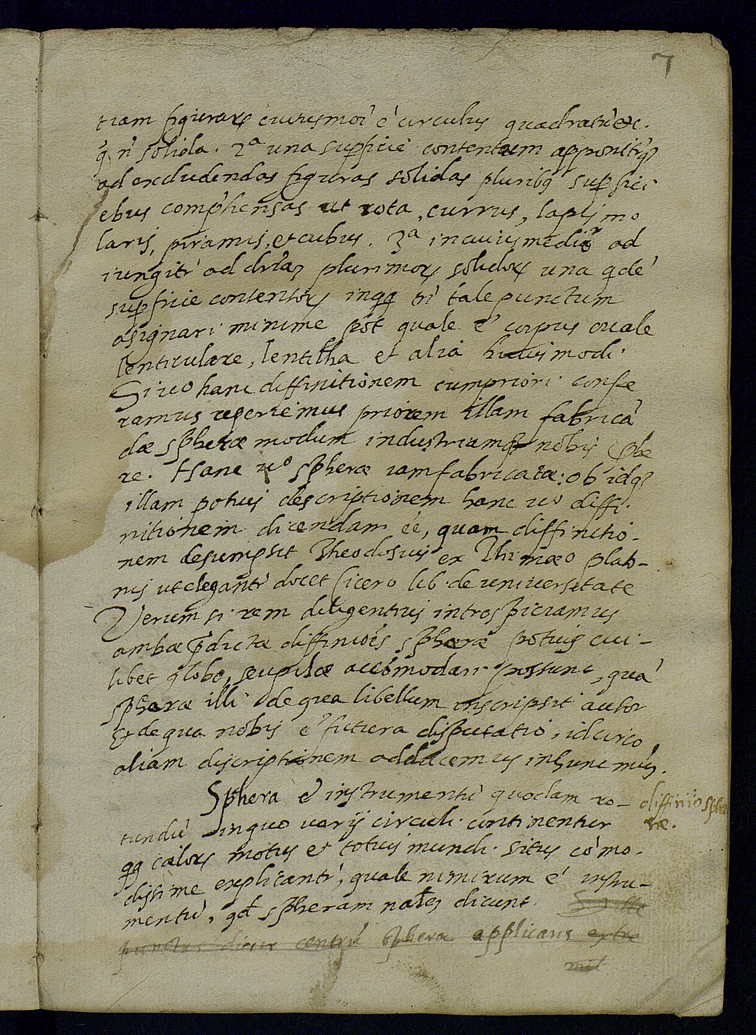 7
tiam figurarꝫ cuiusmōi ē circulus quadratū etc.
q̄ n̄ solida. 2ª una supficie contentum apponitꝫ
ad excludendas figuras solidas pluribꝫ supfici
ebus comp̄hensas ut rota, currus, lapis mo
laris, piramis, et cubus. 3ª in cuius medio ad
iungit̄ ad dr̄iaꝫ plurimorꝫ solidorꝫ una qdē
supficie contentorꝫ in tale punctum
asignari minime pōt quale ē corpus ovale
lenticulare, et alia huiusmodi.
Si uo hanc diffinitionem cum priori confe
ramus reperiemus priorem illam fabricā
dæ spheræ modum industriamqꝫ nobis
re. Hanc uº spheræ iam fabricatæ: ob idqꝫ
illam potius descriptionem hanc uº diffi-
nitionem dicendam eē, quam diffinitio-
nem desumpsit Theodosius ex Thimæo plato-
nis ut eleganti docet Cicero lib. de universitate
Verum si rem diligentius introspiciamus
ambæ p̄dictæ diffiniōis spheræ potius cui-
libet globo, seu pilæ accōmodari possunt, quā
spheræ illi de qua libellum inscripsit autor
Et de qua nobis ē futura disputatio, idcirco
aliam discriptionem adducemus in hunc mūs.
Sphera ē instrumentū quodam ro-
tundū in quo varij circuli continentur
qq cælorꝫ motus et totius mundi situs cōmo-
dissime explicant̄, quale nimirum ē instru-
mentū, qd̄ spheram nales dicunt.
punctus dicitur centrū spheræ applicans extre
mit
diffiniō sphe
ræ.